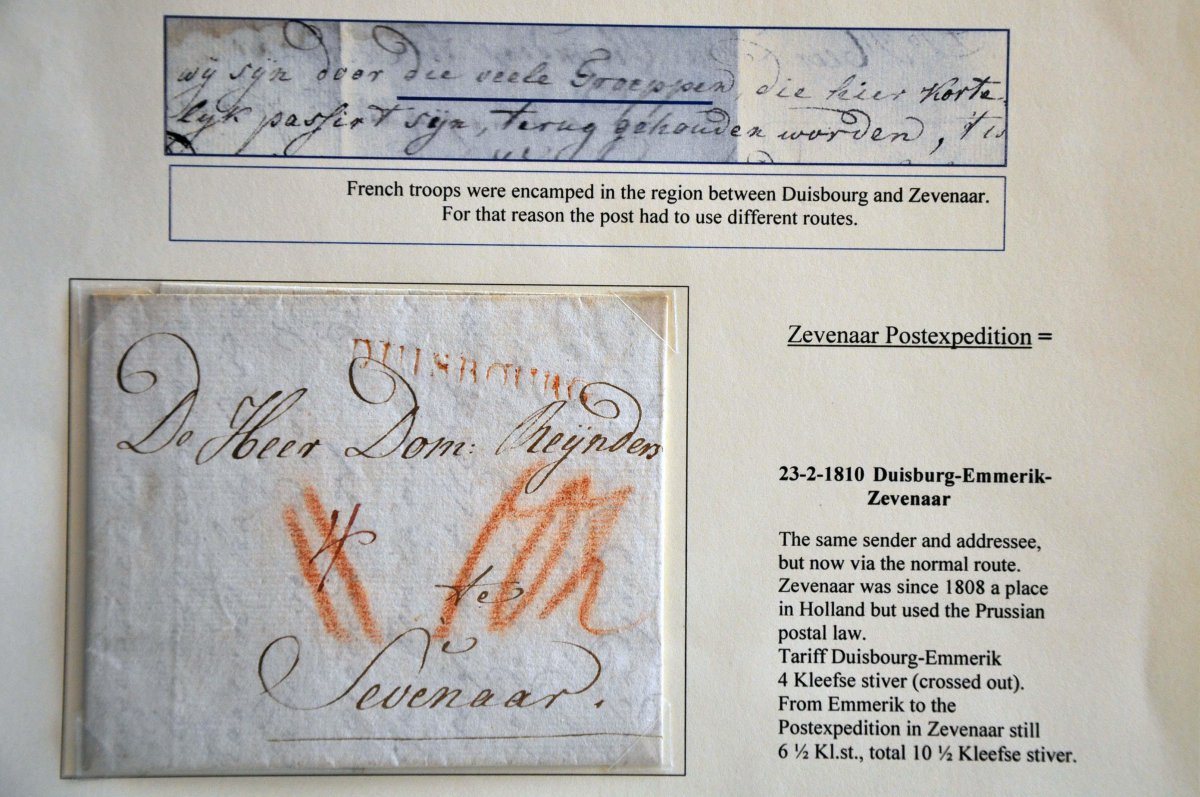 wÿ sÿn door die veele Troeppen, die hier korte-
lÿk passirt sÿn, terug gehouden worden, 't is
French troops were encamped in the region between Duisbourg and Zevenaar.
For that reason the post had to use different routes.
DUIDBSURG
De Heer Dom: Reÿnders
4 10½
te
Sevenaar.
Zevenaar Postexpedition =
23-2-1810 Duisburg-Emmerik-
Zevenaar
The same sender and addressee,
but now via the normal route.
Zevenaar was since 1808 a place
in Holland but used the Prussian
postal law.
Tariff Duisbourg-Emmerik
4 Kleefse stiver (crossed out).
From Emmerik to the
Postexpedition in Zevenaar still
6 ½ Kl.st., total 10 ½ Kleefse stiver.